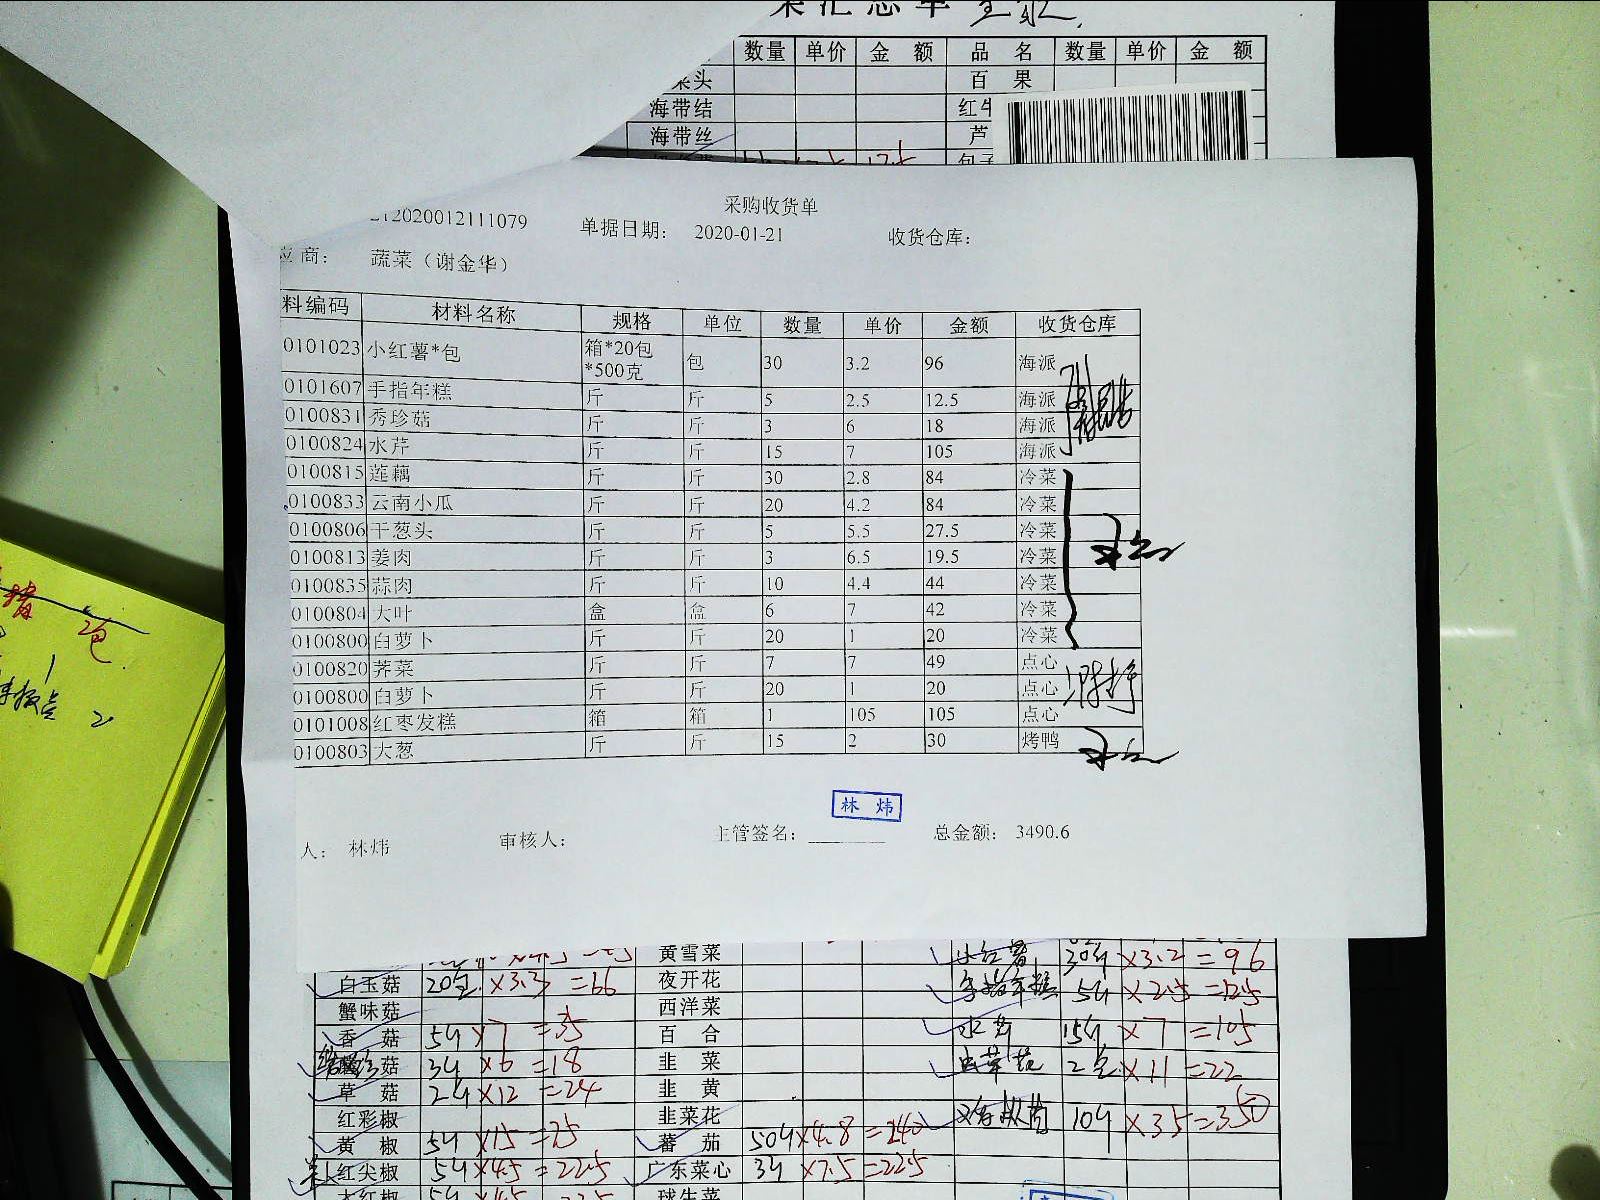 菜汇总单
数量 单价 金额 品名 数量 单价 金额
菜头 百果
海带结 红牛
海带丝 芦
采购收货单
212020012111079 单据日期: 2020-01-21 收货仓库:
应商: 蔬菜（谢金华）
料编码 材料名称 规格 单位 数量 单价 金额 收货仓库
0101023 小红薯*包 箱*20包*500克 包 30 3.2 96 海派
0101607 手指年糕 斤 斤 5 2.5 12.5 海派
0100831 秀珍菇 斤 斤 3 6 18 海派
0100824 水芹 斤 斤 15 7 105 海派
0100815 莲藕 斤 斤 30 2.8 84 冷菜
0100833 云南小瓜 斤 斤 20 4.2 84 冷菜
0100806 干葱头 斤 斤 5 5.5 27.5 冷菜
0100813 姜肉 斤 斤 3 6.5 19.5 冷菜
0100835 蒜肉 斤 斤 10 4.4 44 冷菜
0100804 大叶 盒 盒 6 7 42 冷菜
0100800 白萝卜 斤 斤 20 1 20 冷菜
0100820 荠菜 斤 斤 7 7 49 点心
0100800 白萝卜 斤 斤 20 1 20 点心
0101008 红枣发糕 箱 箱 1 105 105 点心
0100803 大葱 斤 斤 15 2 30 烤鸭
林炜
人: 林炜 审核人: 主管签名: 总金额: 3490.6
黄雪菜 小红薯 30斤 ×3.2 =96
白玉菇 20包 ×3.3 =66 夜开花 手指年糕 5斤 ×2.5 =12.5
蟹味菇 西洋菜
香菇 5斤 ×7 =35 百合 水芹 15斤 ×7 =105
菇 3斤 ×6 =18 韭菜 虫草花 2包 ×11 =22
草菇 2斤 ×12 =24 韭黄
红彩椒 韭菜花 10斤 ×35 =350
黄椒 5斤 ×15 =75 蕃茄 50斤 ×4.8 =240
红尖椒 5斤 ×4.5 =22.5 广东菜心 3斤 ×7.5 =22.5
大红椒 5斤 ×4.5 球生菜